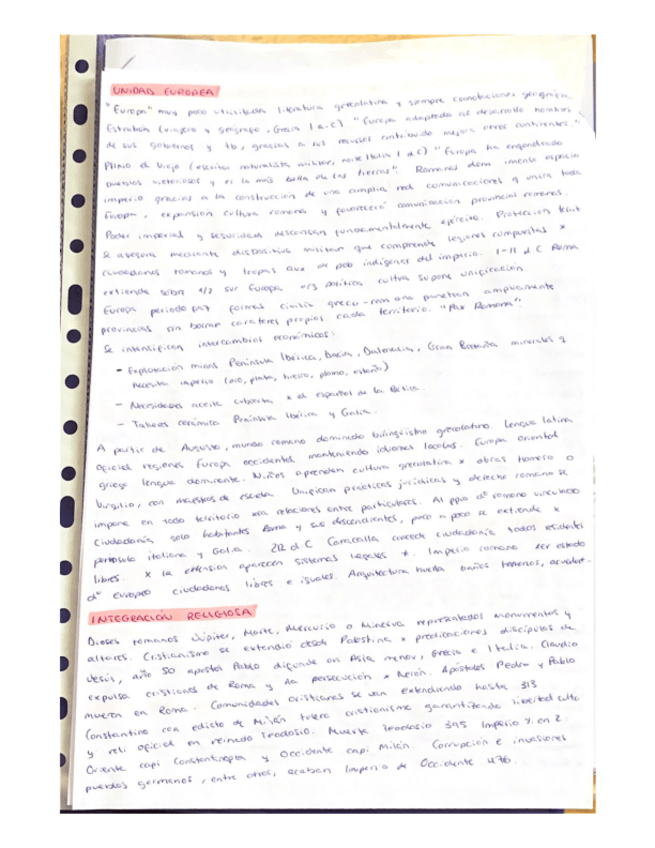 UNIDAD EUROPEA
"Europa" muy poco utilizada literatura grecolatina y siempre connotaciones geográfica
Estrabón (viajero y geógrafo, Grecia I a.C) "Europa adaptada al desarrollo hombres
de sus gobiernos y tb, gracias a sus recursos contribuido mejora otros continentes."
Plinio el Viejo (escritor naturalista militar, norte Italia I d.C) "Europa ha engendrado
pueblos victoriosos y es la más bella de las tierras". Romanos espacio
imperio gracias a la construcción de una amplia red comunicaciones q unirá toda
Europa, expansión cultura romana y favorecerá comunicación provincial romanos.
Poder imperial y seguridad descansan fundamentalmente ejército. Protección
se asegura mediante dispositivo militar que comprende legiones compuestas x
ciudadanos romanos y tropas aux de pob indígenas del imperio. I-II d.C Roma
extiende sobre 1/2 sur Europa org política cultra supone unificación.
Europa periodo paz formas civiliz greco-romana penetran ampliamente
provincias sin borrar carateres propios cada territorio. "Pax Romana".
Se intensifican intercambios económicos:
- Explotación minas Península Ibérica, Dacia, Dalmacia, Gran Bretaña minerales q
necesita imperio (oro, plata, hierro, plomo, estaño)
- Necesidades aceite cubierta x el español de la Bética.
- Talleres cerámica Península Ibérica y Galia.
A partir de Augusto, mundo romano dominado bilingüismo grecolatino. Lengua latina
oficial regiones Europa occidental manteniendo idiomas locales. Europa oriental
griego lengua dominante. Niños aprenden cultura grecolatina x obras Homero o
Virgilio, con maestros de escuela. Unifican prácticas jurídicas y derecho romano se
impone en todo territorio xra relaciones entre particulares. Al ppio dº romano vinculado
ciudadanía solo habitantes Roma y sus descendientes, poco a poco se extiende x
península italiana y Galia. 212 d.C Caracalla concede ciudadanía todos residentes
libres. x la extensión aparecen sistemas legales *. Imperio romano 1er estado
dº europeo ciudadanos libres e iguales. Arquitectura huella baños termones, acueduct.
INTEGRACIÓN RELIGIOSA
Dioses romanos Júpiter, Marte, Mercurio o Minerva representados monumentos y
altares. Cristianismo se extendió desde Palestina x predicaciones discípulos de
Jesús, año 50 apostol Pablo difunde en Asia menor, Grecia e Italia. Claudio
expulsa cristianos de Roma y 1a persecución x Nerón. Apóstoles Pedro y Pablo
mueren en Roma. Comunidades cristianas se van extendiendo hasta 313
Constantino con edicto de Milán tolera cristianismo garantizando libertad culto
y reli oficial en reinado Teodosio. Muerte Teodosio 395 Imperio % en 2:
Oriente capi Constantinopla y Occidente capi Milán. Corrupción e invasiones
pueblos germanos, entre otros, acaban Imperio de Occidente 476.